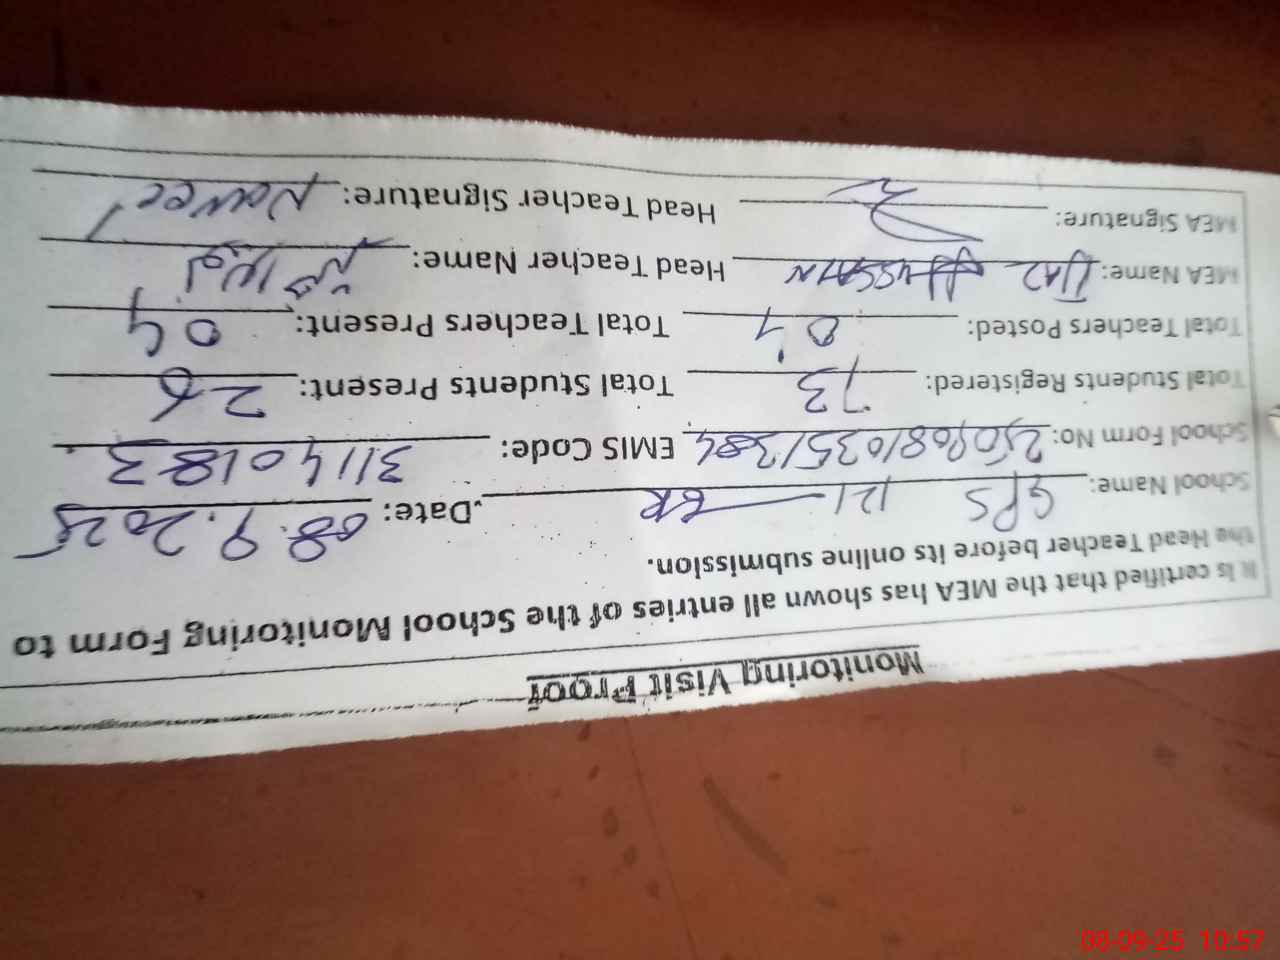 Monitoring Visit Proof
It is certified that the MEA has shown all entries of the School Monitoring Form to
the Head Teacher before its online submission.
School Name: GPS 121 ER Date: 08.9.2025
School Form No: EMIS Code: 31140183
Total Students Registered: 73 Total Students Present: 26
Total Teachers Posted: 04 Total Teachers Present: 04
MEA Name: HUSSAIN Head Teacher Name:
MEA Signature: Head Teacher Signature: Naveed
08-09-25 10:57